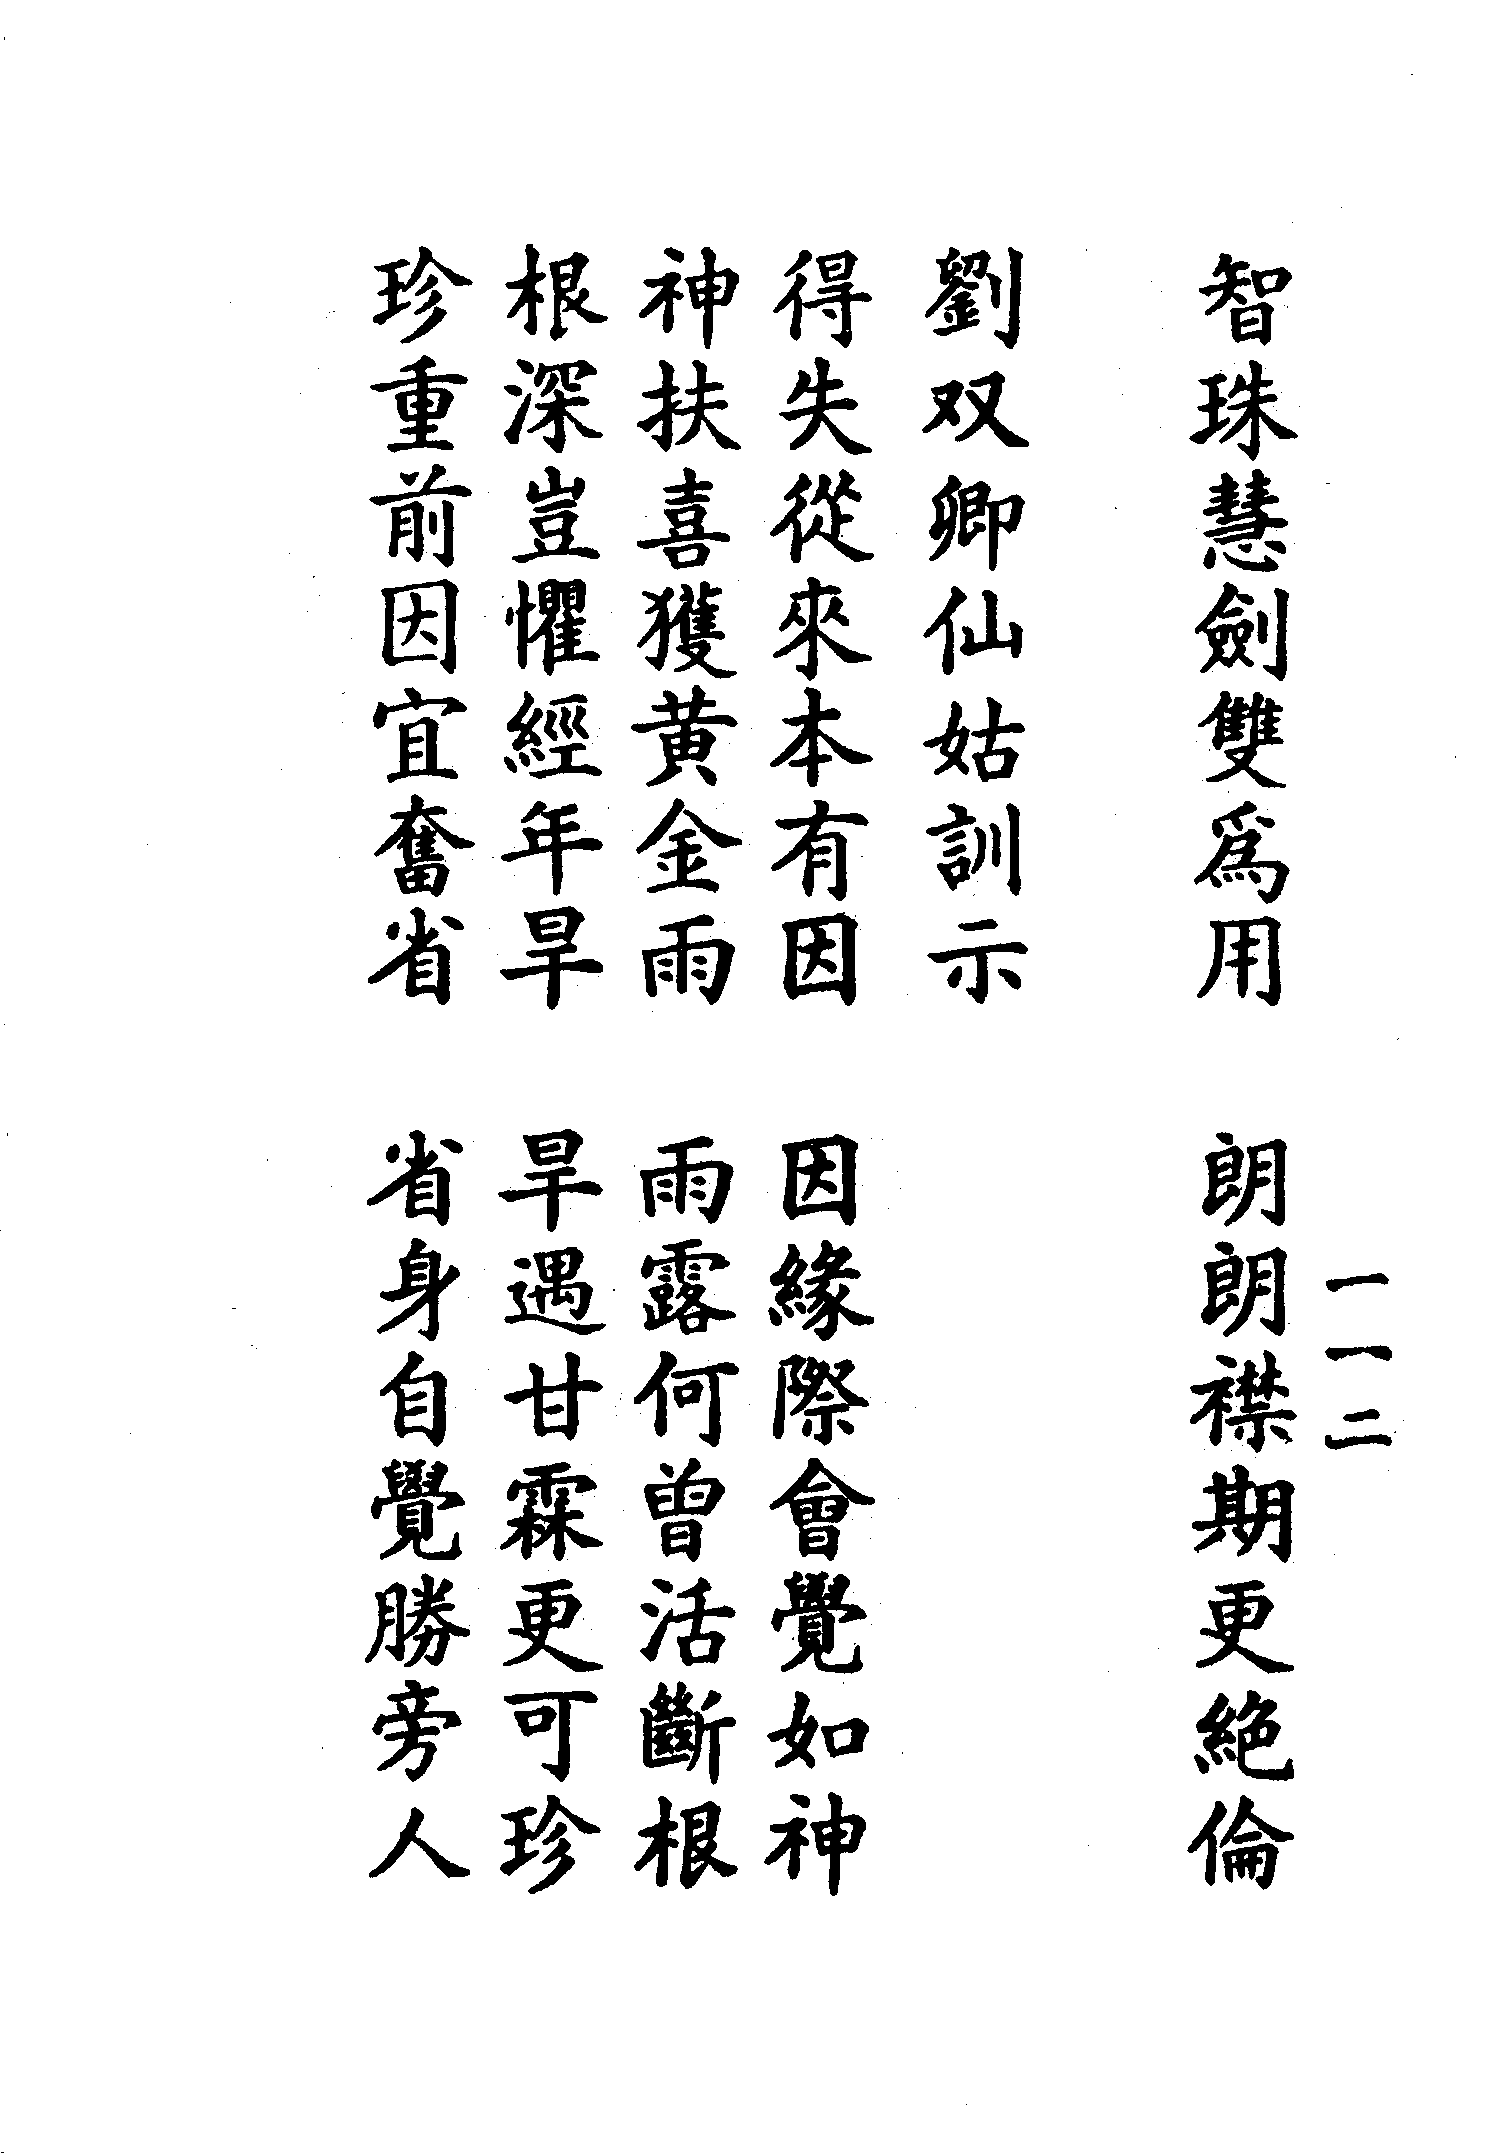 一一二
智珠慧劍雙爲用　朗朗襟期更絕倫
劉双卿仙姑訓示
得失從來本有因　因緣際會覺如神
神扶喜獲黄金雨　雨露何曾活斷根
根深豈懼經年旱　旱遇甘霖更可珍
珍重前因宜奮省　省身自覺勝旁人